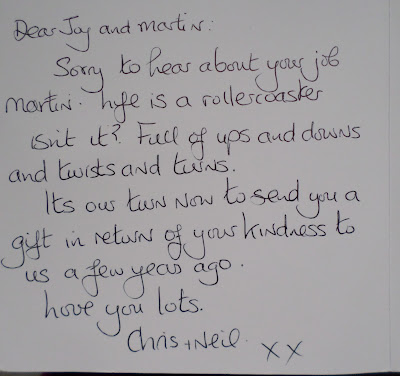 Dear Joy and martin:
Sorry to hear about your job
martin. Life is a rollercoaster
isnt it? Full of ups and downs
and twists and turns.
Its our turn now to send you a
gift in return of your kindness to
us a few years ago.
Love you lots.
Chris + Neil. X X